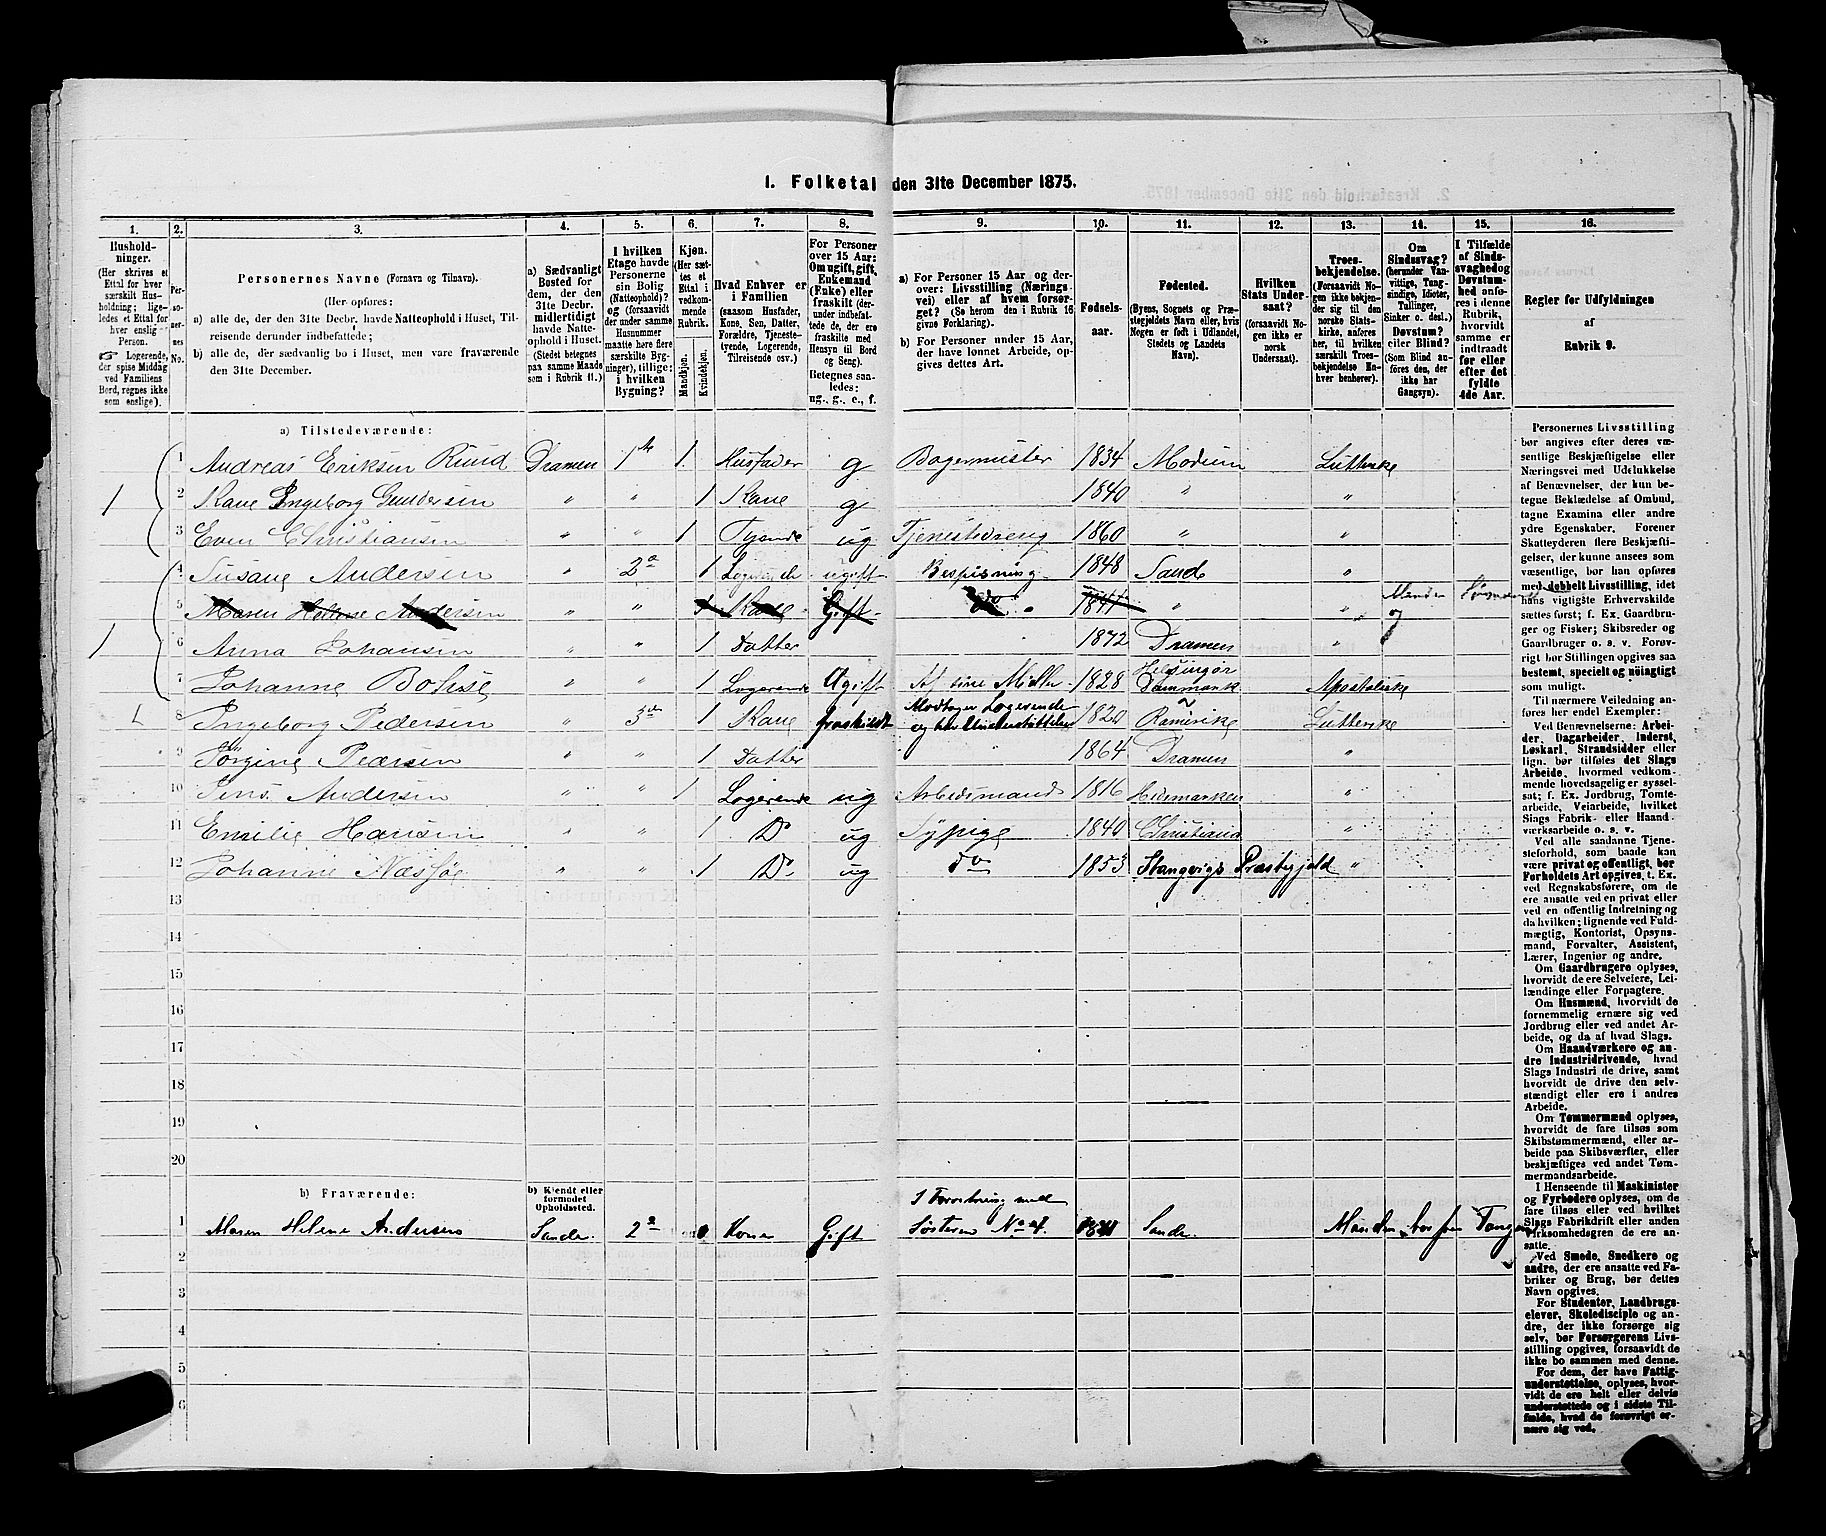 1. Folketal den 31te December 1875.
1. 2. 3. 4. 5. 6. 7. 8. 9. 10. 11. 12. 13. 14. 15. 16.
Husholdninger. (Her skrives et Ettal for hver særskilt Husholdning; ligeledes et Ettal for hver enslig Person. ☞ Logerende, der spise Middag ved Familiens Bord, regnes ikke som enslige).
Personernes No.
Personernes Navne (Fornavn og Tilnavn).
(Her opføres:
a) alle de, der den 31te Decbr. havde Natteophold i Huset, Tilreisende derunder indbefattede;
b) alle de, der sædvanlig bo i Huset, men vare fraværende den 31te December.
a) Sædvanligt Bosted for dem, der den 31te Decbr. midlertidigt havde Natteophold i Huset. (Stedet betegnes paa samme Maade som i Rubrik 11.)
I hvilken Etage havde Personerne sin Bolig (Natteophold)? og (forsaavidt der under samme Husnummer maatte høre flere særskilte Bygninger), tillige: i hvilken Bygning?
Kjøn. (Her sættes et Ettal i vedkommende Rubrik. Mandkjøn. Kvindekjøn.
Hvad Enhver er i Familien (saasom Husfader, Kone, Søn, Datter, Forældre, Tjenestetyende, Logerende, Tilreisende osv.)
For Personer over 15 Aar: Om ugift, gift, Enkemand (Enke) eller fraskilt (derunder indbefattede de, der ere fraskilte med Hensyn til Bord og Seng). Betegnes saaledes: ug., g., e., f.
a) For Personer 15 Aar og derover: Livsstilling (Næringsvei) eller af hvem forsørget? (Se herom den i Rubrik 16 givne Forklaring).
b) For Personer under 15 Aar, der have lønnet Arbeide, opgives dettes Art.
Fødselsaar.
Fødested. (Byens, Sognets og Præstegjeldets Navn eller, hvis Nogen er født i Udlandet, Stedets og Landets Navn).
Hvilken Stats Undersaat? (forsaavidt Nogen ikke er norsk Undersaat).
Troesbekjendelse. (Forsaavidt Nogen ikke bekjender sig til den norske Statskirke, anføres her, til hvilken særskilt Troesbekjendelse Enhver henhører).
Om Sindssvag? (herunder Vanvittige, Tungsindige, Idioter, Tullinger, Sinker o. desl.) Døvstum? eller Blind? (Som Blind anføres den, der ikke har Gangsyn).
I Tilfælde af Sindssvaghed og Døvstumhed anføres i denne Rubrik, hvorvidt samme er indtraadt før eller efter det fyldte 4de Aar.
Regler for Udfyldningen af Rubrik 9.
a) Tilstedeværende:
1 Andreas Eriksen Ruud Dramen 1te 1. Husfader g Bagermister 1834 Modum Lutterske
1 2 Kone Ingeborg Gundersen " " 1 Kone g 1840 " "
3 Even Christiansen " " 1 Tyende ug Tjenestedreng 1860 " "
4 Susane Andersen " 2a 1 Logerende ugift Bespisning 1848 Sande "
5 Maren Helene Andersen " " 1 Kone Gift do 1841 " " Manden
1 6 Anna Johansen " " 1 Datter 1872 Dramen "
7 Johanne Bohse " " 1 Logerende Ugift Af sine Midler 1828 Helsingør Danmark Apostoliske
8 Ingeborg Pedersen " 3d 1 Kone fraskildt Modtager Logerende og har Understøttelse 1820 Romerike Lutterske
9 Jørgine Pedersen " " 1 Datter 1864 Dramen "
10 Jens Andersen " " 1 Logerende ug Arbeidsmand 1816 Hedemarken "
11 Emilie Hansen " " 1 Do ug Sypige 1840 Christiana "
12 Johanne Næsføe " " 1 Do ug do 1853 Stangvigs Præstegjeld "
13
14
15
16
17
18
19
20
b) Fraværende:
b) Kjendt eller formodet Opholdssted.
1 Maren Helene Andersen Sande. 2a Kone Gift I Forretning med Søsteren No 4. 1841 Sande. Manden bor paa Tangen
2
3
4
5
6
Personernes Livsstilling bør angives efter deres væsentlige Beskjæftigelse eller Næringsvei med Udelukkelse af Benævnelser, der kun betegne Bekledelse af Ombud, tagne Examina eller andre ydre Egenskaber. Forener Skatteyderen flere Beskjæftigelser, der kunne ansees som væsentlige, bør han opføres med dobbelt Livsstilling, idet hans vigtigste Erhvervskilde sættes først; f. Ex. Gaardbruger og Fisker; Skibsreder og Gaardbruger o. s. v. Forøvrigt bør Stillingen opgives saa bestemt, specielt og nøiagtigt som muligt.
Til nærmere Veiledning anføres her endel Exempler:
Ved Benævnelserne: Arbeider, Dagarbeider, Inderst, Løskarl, Strandsidder eller lign. bør tilføies det Slags Arbeide, hvormed vedkommende hovedsagelig er sysselsat; f. Ex. Jordbrug, Tomtearbeide, Veiarbeide, hvilket Slags Fabrik- eller Haandværksarbeide o. s. v.
Ved alle saadanne Tjenesteforhold, som baade kan være privat og offentligt, bør Forholdets Art opgives, t. Ex. ved Regnskabsførere, om de ere ansatte ved en privat eller ved en offentlig Indretning og da hvilken; lignende ved Fuldmægtig, Kontorist, Opsynsmand, Forvalter, Assistent, Lærer, Ingeniør og andre.
Om Gaardbrugere oplyses, hvorvidt de ere Selveiere, Leilændinge eller Forpagtere.
Om Husmænd, hvorvidt de fornemmelig ernære sig ved Jordbrug eller ved andet Arbeide, og da af hvad Slags.
Om Haandværkere og andre Industridrivende, hvad Slags Industri de drive, samt hvorvidt de drive den selvstændigt eller ere i andres Arbeide.
Om Tømmermænd oplyses, hvorvidt de fare tilsøs som Skibstømmermænd, eller arbeide paa Skibsværfter, eller beskjæftiges ved andet Tømmermandsarbeide.
I Henseende til Maskinister og Fyrbødere oplyses, om de fare tilsøs eller ved hvilket Slags Fabrikdrift eller anden Virksomhedsgren de ere ansatte.
Ved Smede, Snedkere og andre, der ere ansatte ved Fabriker og Brug, bør dettes Navn opgives.
For Studenter, Landbrugselever, Skoledisciple og andre, der ikke forsørge sig selv, bør Forsørgerens Livsstilling opgives, forsaavidt de ikke bo sammen med denne.
For dem, der have Fattigunderstøttelse, oplyses, hvorvidt de ere helt eller delvis understøttede og i sidste Tilfælde, hvad de forøvrigt ernære sig ved.